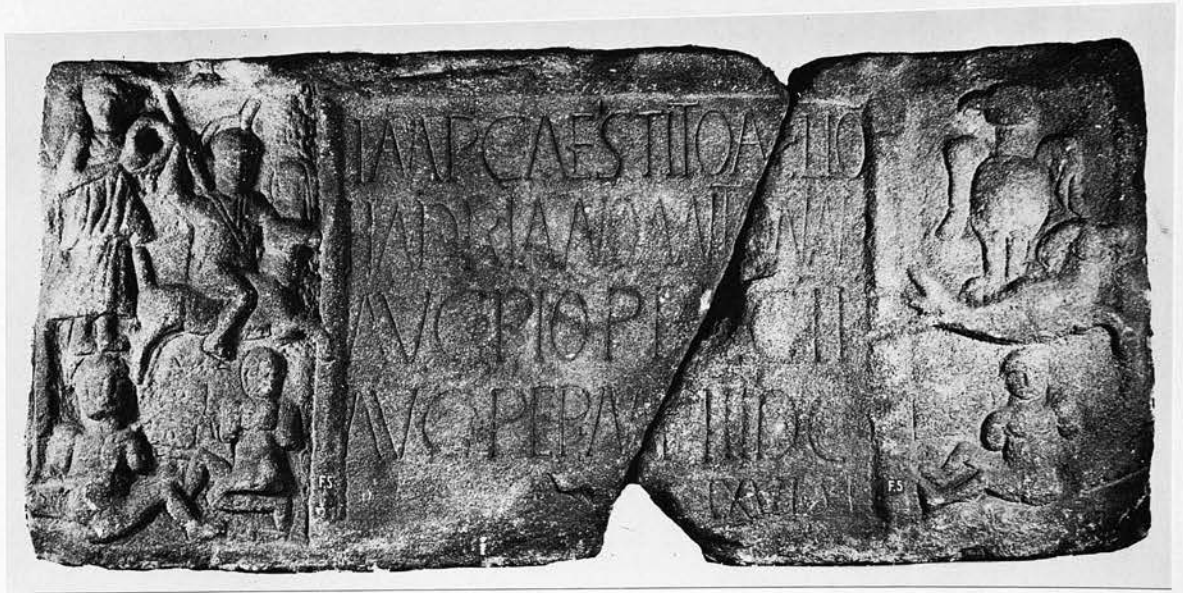 IMP CAES TITO AELIO
HADRIANO ANTONINO
AVG PIO P P LEG II
AVG PER M P III DC
LXVI S
F.S
F.S